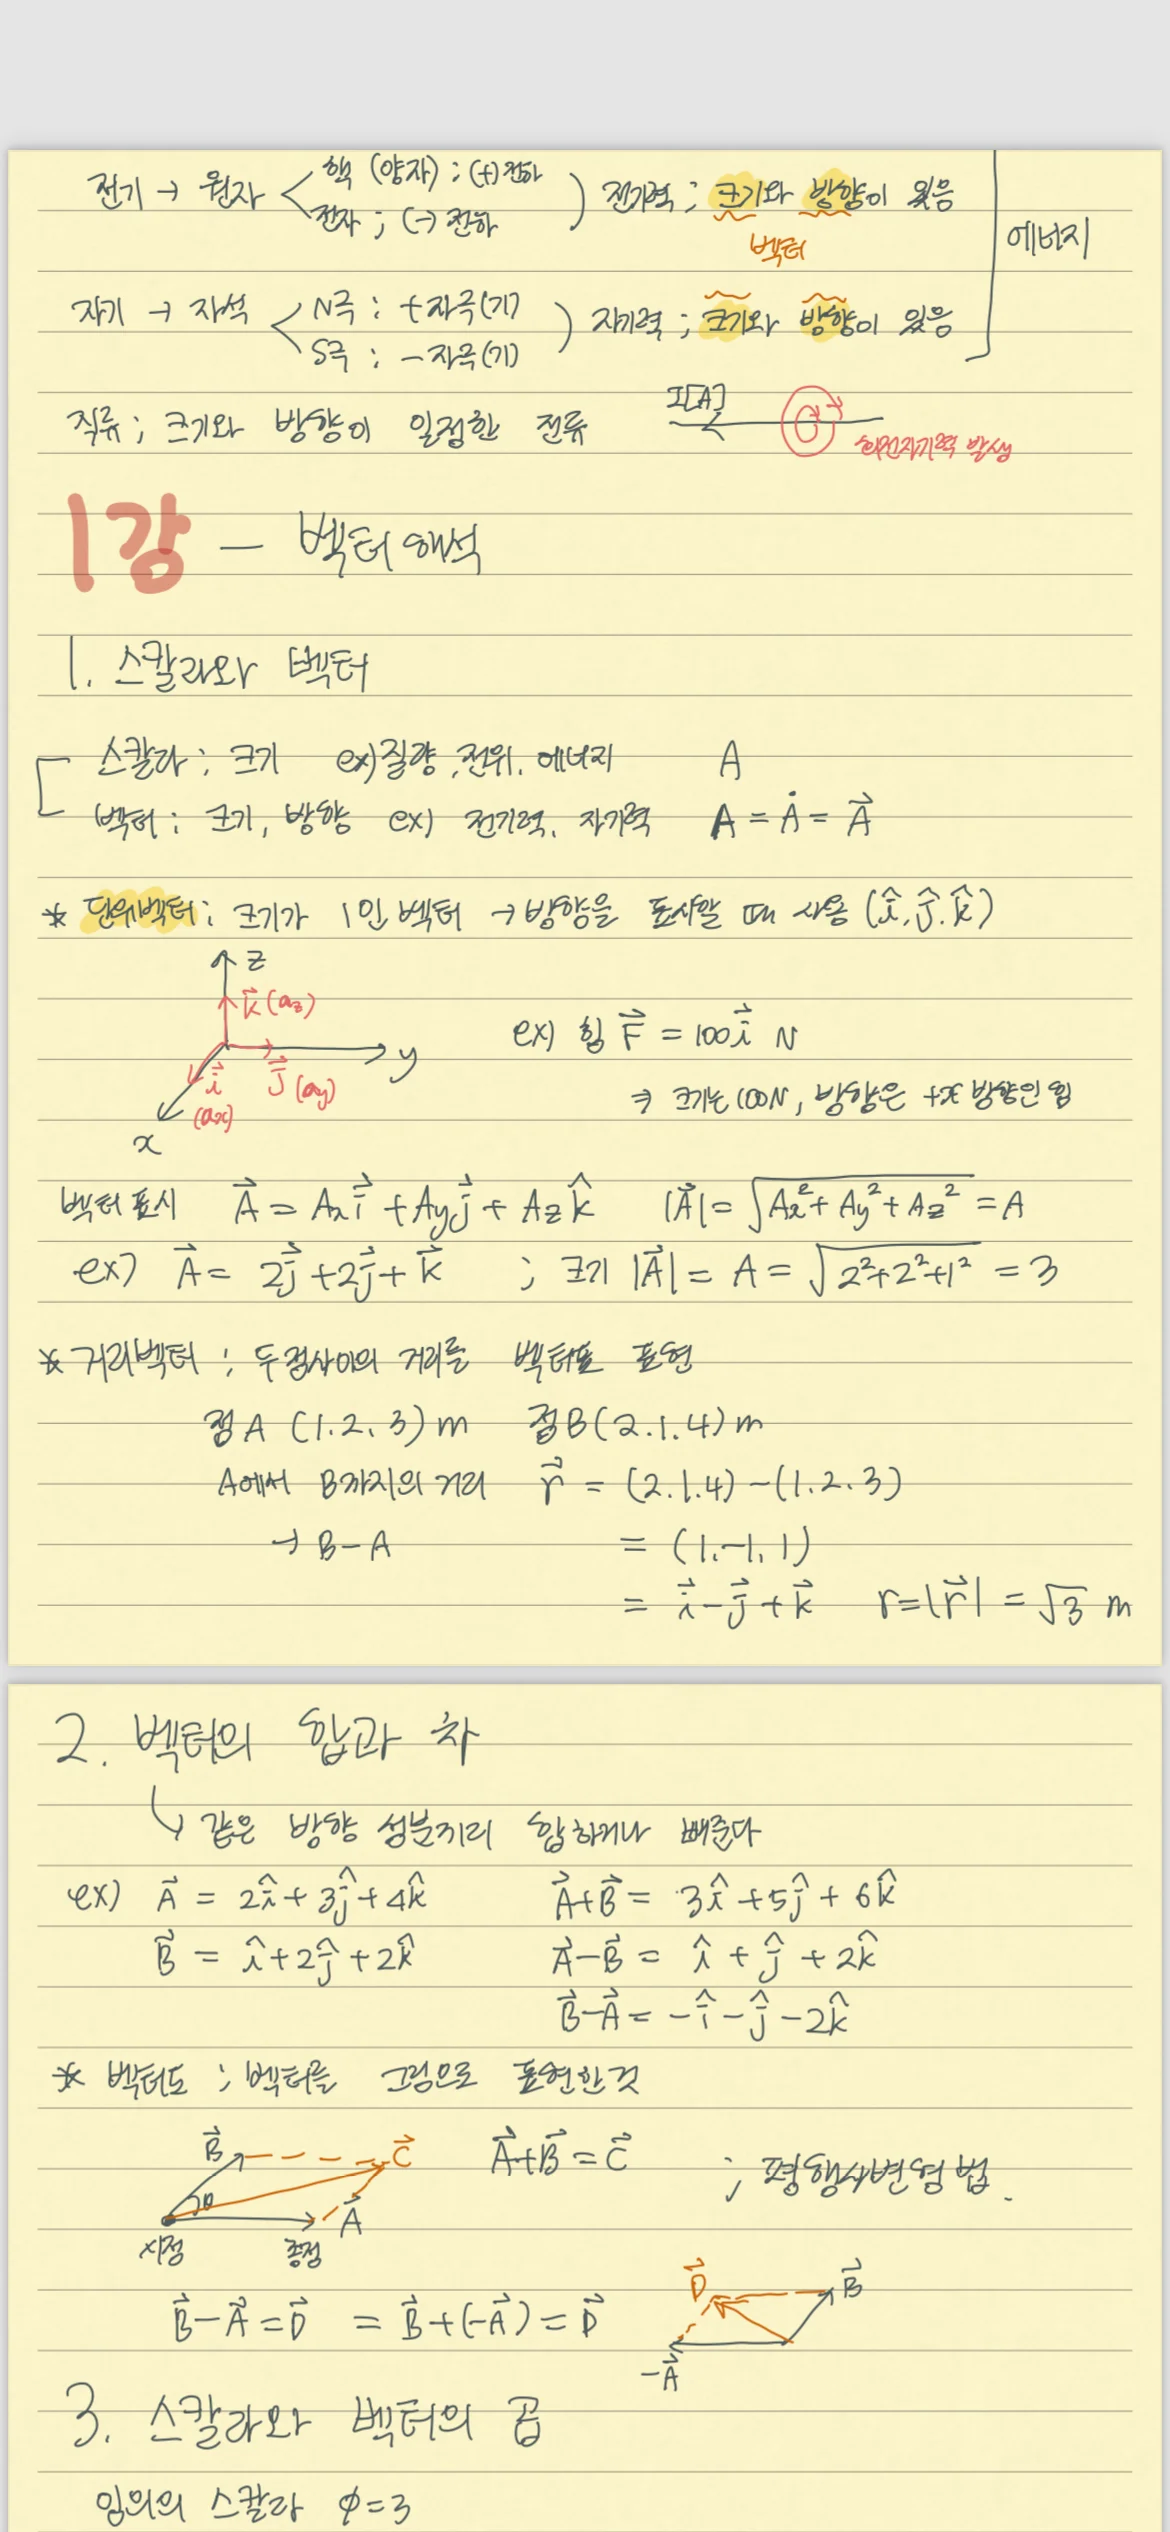 전기 → 원자 < 핵 (양자) : (+)전하
전자 ; (-) 전하
) 전기력 ; 크기와 방향이 있음
벡터
에너지
자기 → 자석 < N극 : +자극(기)
S극 : -자극(기)
) 자기력 ; 크기와 방향이 있음
직류 ; 크기와 방향이 일정한 전류
I[A]
회전자기력 발생
1강 - 벡터해석
1. 스칼라와 벡터
스칼라 ; 크기 ex) 질량, 전위, 에너지 A
벡터 : 크기, 방향 ex) 전기력, 자기력 A = Ȧ = A⃗
* 단위벡터 : 크기가 1인 벡터 → 방향을 표시할 때 사용 (î, ĵ, k̂)
z
k⃗ (az)
y
j⃗ (ay)
i⃗ (ax)
x
ex) 힘 F⃗ = 100i⃗ N
⇒ 크기는 100N, 방향은 +x 방향인 힘
벡터 표시 A⃗ = Axi⃗ + Ayj⃗ + Azk̂ |A⃗| = √(Ax² + Ay² + Az²) = A
ex) A⃗ = 2j⃗ + 2j⃗ + k⃗ ; 크기 |A⃗| = A = √(2²+2²+1²) = 3
* 거리벡터 ; 두점사이의 거리를 벡터로 표현
점A (1.2.3)m 점B(2.1.4)m
A에서 B까지의 거리 r⃗ = (2.1.4) - (1.2.3)
→ B-A = (1.-1.1)
= i⃗ - j⃗ + k⃗ r = |r⃗| = √3 m
2. 벡터의 합과 차
↳ 같은 방향 성분끼리 합하거나 빼준다
ex) A⃗ = 2î + 3ĵ + 4k̂ A⃗+B⃗ = 3î + 5ĵ + 6k̂
B⃗ = î + 2ĵ + 2k̂ A⃗-B⃗ = î + ĵ + 2k̂
B⃗-A⃗ = -î - ĵ - 2k̂
* 벡터도 ; 벡터를 그림으로 표현한것
B⃗ C⃗ A⃗+B⃗ = C⃗ ; 평행사변형법.
θ A⃗
시점 종점
B⃗-A⃗ = D⃗ = B⃗+(-A⃗) = D⃗
D⃗ B⃗
-A⃗
3. 스칼라와 벡터의 곱
임의의 스칼라 φ=3